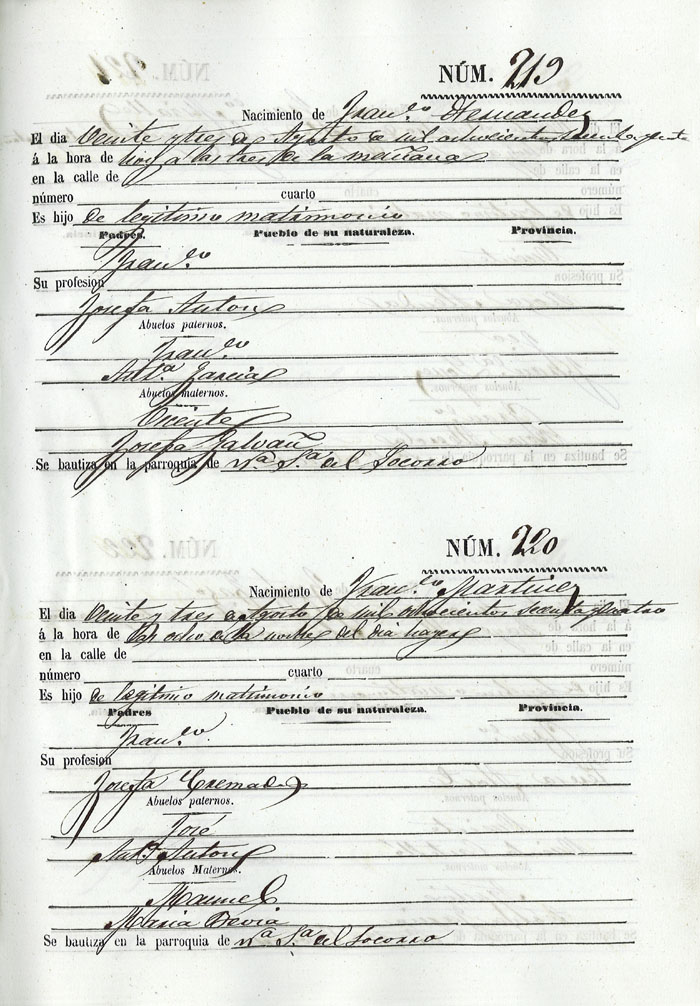 NÚM. 219
Nacimiento de Fran.co Hernandez
El dia Veinte y tres de Agosto de mil ochocientos
á la hora de hoy a las tres de la mañana
en la calle de
número cuarto
Es hijo de legitimo matrimonio
Padres. Pueblo de su naturaleza. Provincia.
Fran.co
Su profesion
Josefa Anton
Abuelos paternos.
Fran.co
Ant.a Garcia
Abuelos maternos.
Vicente
Josefa Galvañ
Se bautiza en la parroquia de N.a S.a del Socorro
NÚM. 220
Nacimiento de Fran.co Martinez
El dia Veinte y tres de Agosto de mil ochocientos sesenta y cuatro
á la hora de las ocho de la noche del dia
en la calle de
número cuarto
Es hijo de legitimo matrimonio
Padres Pueblo de su naturaleza. Provincia.
Fran.co
Su profesion
Josefa Cremades
Abuelos paternos.
José
Ant.a Anton
Abuelos Maternos.
Manuel
Maria Devia
Se bautiza en la parroquia de N.a S.a del Socorro